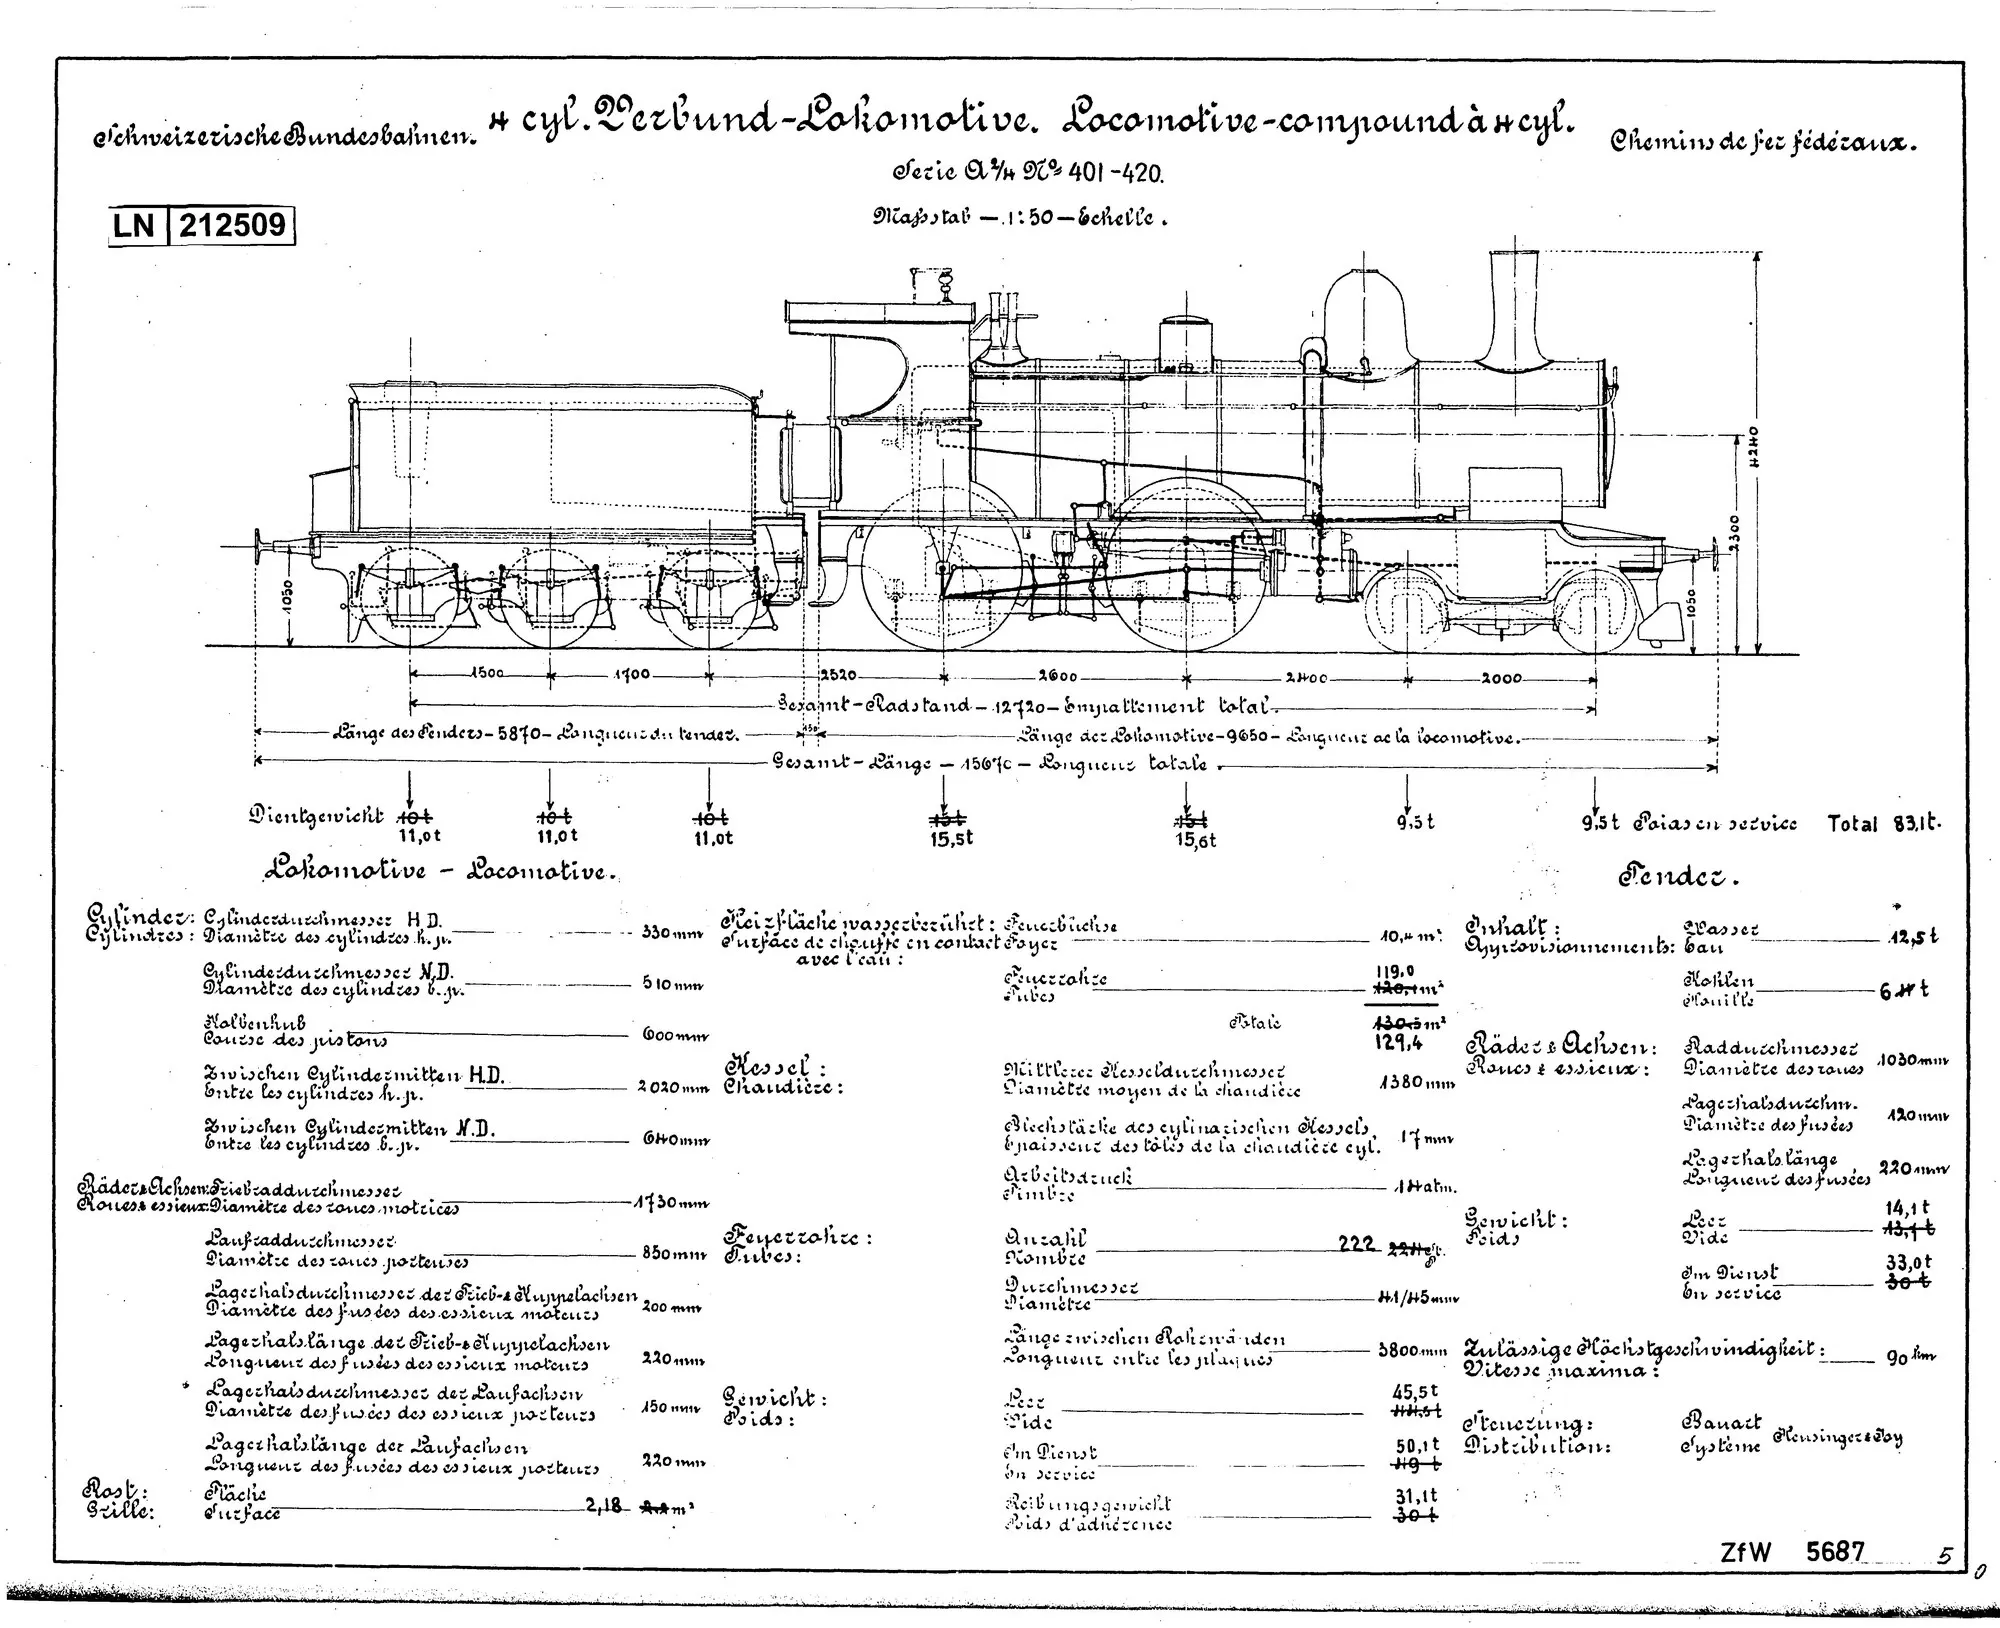 Schweizerische Bundesbahnen.
4 cyl. Verbund-Lokomotive. Locomotive-compound à 4 cyl.
Chemins de fer fédéraux.
Serie A 2/4 Nos 401-420.
LN 212509
Maßstab — 1:50 — Echelle.
4240
2300
1050
1050
1500 1700 2520 2600 2400 2000
Gesamt-Radstand — 12720 — Empattement total.
Länge des Tenders — 5870 — Longueur du tender. 150 Länge der Lokomotive — 9650 — Longueur de la locomotive.
Gesamt-Länge — 15670 — Longueur totale.
Dientgewicht 10 t 10 t 10 t 15 t 15 t 9,5 t 9,5 t Poias en service Total 83,1t.
11,0t 11,0t 11,0t 15,5t 15,6t
Lokomotive — Locomotive.
Cylinder: Cylinderdurchmesser H.D.
Cylindres: Diamètre des cylindres h.p. 330 mm
Cylinderdurchmesser N.D.
Diamètre des cylindres b.p. 510 mm
Kolbenhub
Course des pistons 600 mm
Zwischen Cylindermitten H.D.
Entre les cylindres h.p. 2020 mm
Zwischen Cylindermitten N.D.
Entre les cylindres b.p. 640 mm
Räder & Achsen: Triebraddurchmesser
Roues & essieux: Diamètre des roues motrices 1730 mm
Laufraddurchmesser
Diamètre des roues porteuses 850 mm
Lagerhalsdurchmesser der Trieb-& Kuppelachsen
Diamètre des fusées des essieux moteurs 200 mm
Lagerhalslänge der Trieb-& Kuppelachsen
Longueur des fusées des essieux moteurs 220 mm
Lagerhalsdurchmesser der Laufachsen
Diamètre des fusées des essieux porteurs 150 mm
Lagerhalslänge der Laufachsen
Longueur des fusées des essieux porteurs 220 mm
Rost: Fläche
Grille: Surface 2,18 2.2 m²
Heizfläche wasserberührt: Feuerbüchse
Surface de chauffe en contact Foyer 10,4 m²
avec l'eau:
Feuerrohre 119.0
Tubes 120,1 m²
Totale 130.5 m²
129,4
Kessel: Mittlerer Kesseldurchmesser
Chaudière: Diamètre moyen de la chaudière 1380 mm
Blechstärke des cylindrischen Kessels
Epaisseur des tôles de la chaudière cyl. 17 mm
Arbeitsdruck
Timbre 14 atm.
Feuerrohre: Anzahl
Tubes: Nombre 222
Durchmesser
Diamètre 41/45 mm
Länge zwischen Rohrwänden
Longueur entre les plaques 3800 mm
Gewicht: Leer 45,5t
Poids: Vide 44,5 t
Im Dienst 50,1t
En service 49 t
Reibungsgewicht 31,1t
Poids d'adhérence 30 t
Tender.
Inhalt: Wasser
Approvisionnements: Eau 12,5 t
Kohlen
Houille 6 t
Räder & Achsen: Raddurchmesser
Roues & essieux: Diamètre des roues 1030 mm
Lagerhalsdurchm.
Diamètre des fusées 120 mm
Lagerhalslänge
Longueur des fusées 220 mm
Gewicht: Leer 14,1 t
Poids Vide 13,1 t
Im Dienst 33,0t
En service 30 t
Zulässige Höchstgeschwindigkeit:
Vitesse maxima: 90 km
Steuerung: Bauart
Distribution: Système Heusinger & Joy
ZfW 5687
5
0